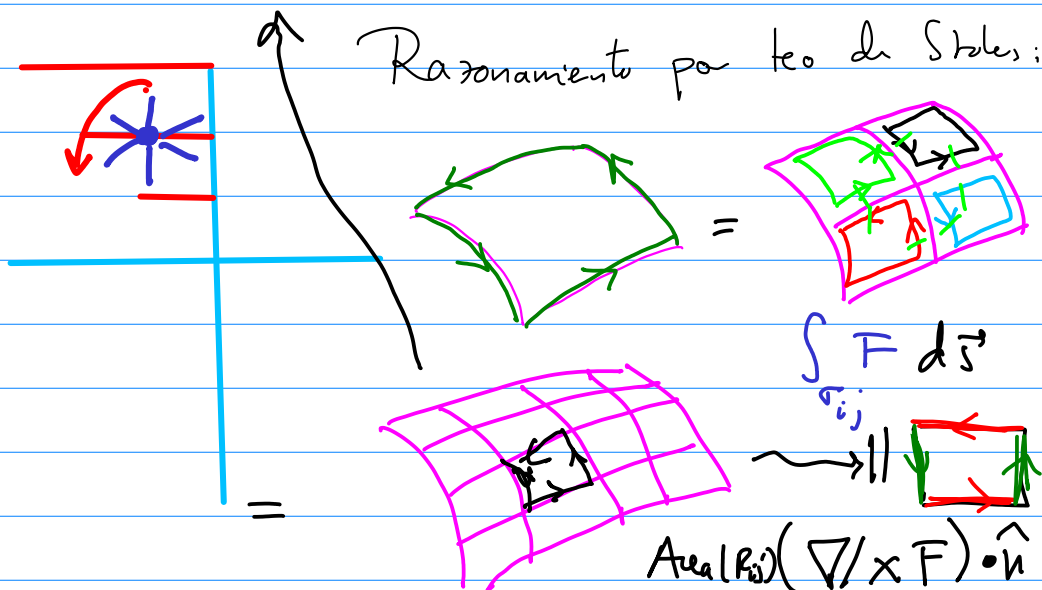 Razonamiento por teo de Stokes:
=
∫σij F ds⃗
=
Area(Rij)(∇ × F)•n̂